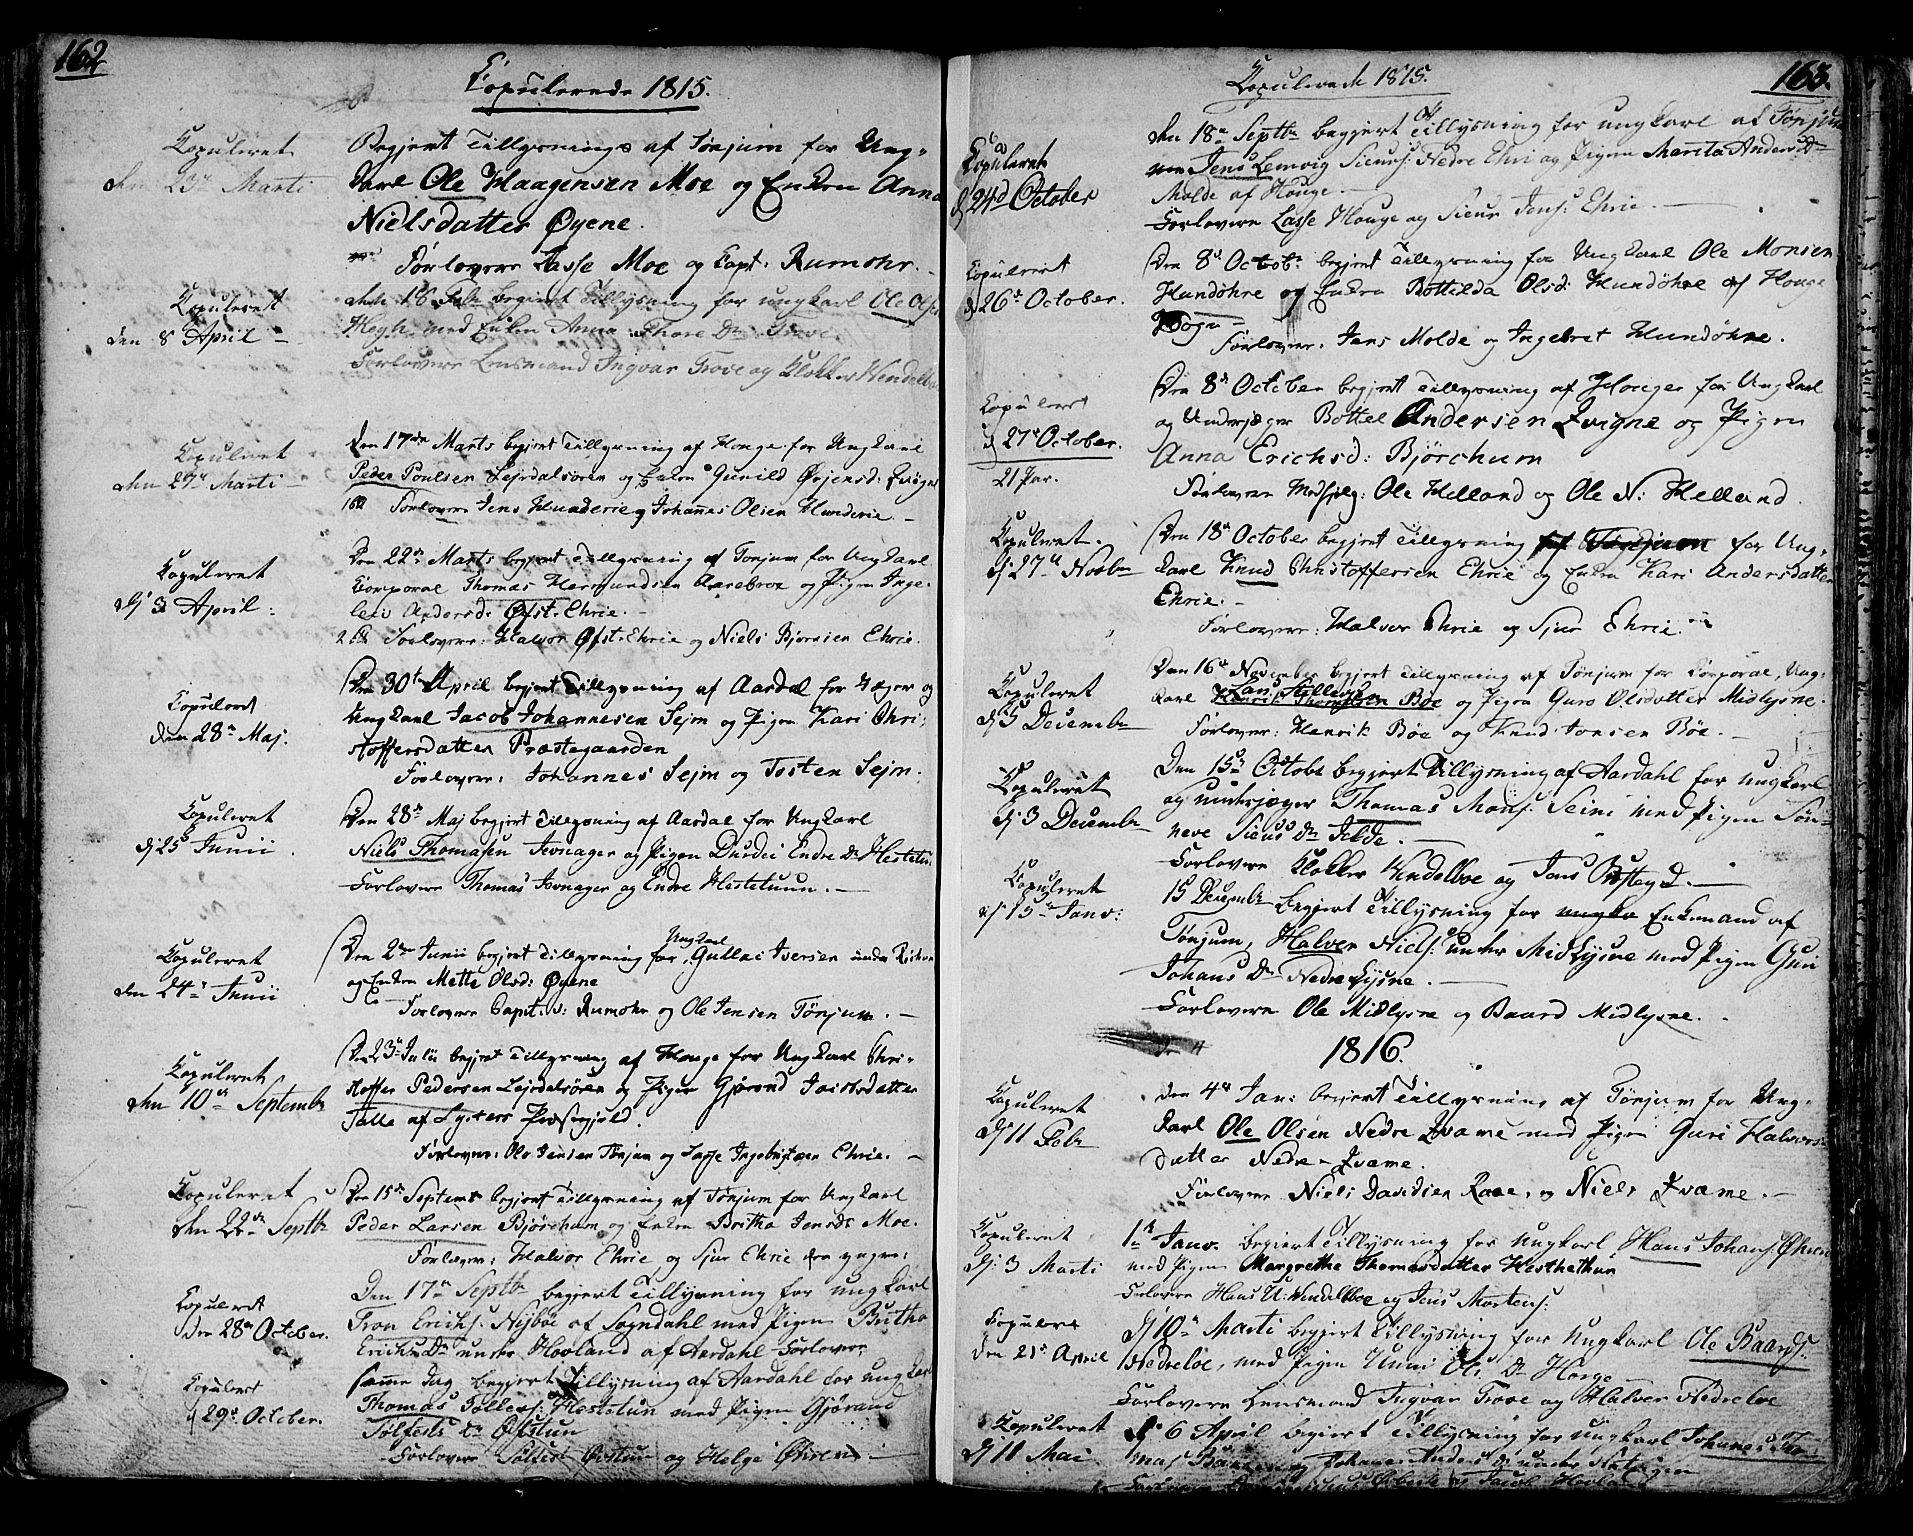 162
Copulerede 1815.
Copuleret
den 23de Marti
Begjert Tillysning af Tønjum for Ung-
karl Ole Haagensen Moe og Enken Anna
Nielsdatter Øyene.
Forlovere Lasse Moe og Capt: Rumohr.
Copuleret
den 8 April
den 16 Feb begiert Tillysning for ungkarl Ole Ols:
Hegh med Enken Anna Thore Dr Trove
Forlovere Lensmand Ingvar Trove og Klokker Wendelboe
Copuleret
den 27de Marti
Den 17de Marts begjert Tillysning af Houge for Ungkarl
Peder Poulsen Lejrdalsøren og Enken Gunild
Forlovere Jens Hunderie og Johannes Olsen Hunderie.
Copuleret
d: 3 April
Den 22de Marts begjert Tillysning af Tønjum for Ungkarl
Corporal Thomas Hermundsen Aarebroe og Pigen Inge-
leiv Andersd: Øfst. Ehrie.
Forlovere: Halvor Øfst. Ehrie og Niels Bjørnsen Ehrie.
Copuleret
den 28de Maj.
Den 30te April begjert Tillysning af Aardal for Jæger og
Ungkarl Jacob Johannesen Sejm og Pigen Kari Chri-
stoffersdatter Præstegaarden
Forlovere: Johannes Sejm og Tosten Sejm.
Copuleret
d: 25 Junii
Den 28de Maj begjert Tillysning af Aardal for Ungkarl
Niels Thomasen Jevnager og Pigen Durdei Endre Dr Hestetun
Forlovere Thomas Jevnager og Endre Hestetuun.
Copuleret
den 24de Junii
Ungkarl
Den 2den Junii begjert Tillysning for Gullac Iversen under
og Enken Mette Olsd: Øyene
Forlovere Capt. v: Rumohr og Ole Jensen Tønjum.
Copuleret
den 10de Septembr
Den 23de Julii begjert Tillysning af Houge for Ungkarl Chri-
stoffer Pedersen Lejrdalsøren og Pigen Gjørond Jacobsdatter
Talle af Lysters Præstegjeld.
Forlovere: Ole Jensen Tønjum og Lasse Ingebrigtsen Ehrie.
Copuleret
den 22de Septbr
Den 15de Septemb begjert Tillysning af Tønjum for Ungkarl
Peder Larsen Bjørchum og Enken Britha Jensdr Moe.
Forlovere: Halvor Ehrie og Sjur Ehrie den yngre.
Copuleret
den 28de October.
Den 17de Septbr begjert Tillysning for ungkarl
Tron Erichs: Nysbøe af Sogndahl med Pigen Britha
Erichs Dr under Hovland af Aardahl Forlovere
Copuleret
d 29de October.
samme dag begjert Tillysning af Aardahl for ungkarl
Thomas Tollefs: Hestetun med Pigen Gjørand
Tolfests Dr Øfstun
Forlovere Tolfest Øfstun og Helge Øhren
163.
Copulerede 1815.
Copuleret
d 24d October
den 18de Septbr begjert Tillysning for ungkarl af Tønjum
Jens Lemvig Siurs: Nedre Ehri og Pigen Marita Anders Dr
Molde af Houge.
Forlovere Lasse Houge og Siur Jens: Ehrie.
Copuleret
d 26de October.
Den 8de Octob: begjert Tillysning for Ungkarl Ole Monsen
Hundøhre og Enken Bottilda Olsd: Hundøhre af Houge
Sogn
Forlovere: Jens Molde og Ingebret Hundøhre.
Copuleret
d 27de October.
21 Par.
Den 8de October begjert Tillysning af Houge for Ungkarl
og Underjæger Bottel Andersen Qvigne og Pigen
Anna Erichsd: Bjørchum
Forlovere Medhielp: Ole Helland og Ole N: Helland.
Copuleret.
d: 27de Novbr
Den 18de October begjert Tillysning af Tønjum for Ung-
karl Knud Christoffersen Ehrie og Enken Kari Andersdatter
Ehrie.
Forlovere: Halvor Ehrie og Sjur Ehrie.
Copuleret
d: 5 Decembr
Den 16de November begjert Tillysning af Tønjum for Corporal, Ung-
karl Henrik Thomassen Bøe og Pigen Guro Olsdatter Midlysne.
Forlovere: Henrik Bøe og Knud Jonsen Bøe.
Copuleret
d: 3 Decembr
Den 15de Octobr begjert Tillysning af Aardahl for ungkarl
og underjæger Thomas Mons: Seim med Pigen Syn-
neve Siurs Dr Jelde.
Forlovere Klokker Wendelboe og Jens Øfstegd.
Copuleret
d: 15de Janv:
15 Decembr begjert Tillysning for ungka Enkemand af
Tønjum, Halver Niels: under Midlysne med Pigen Guri
Johans Dr Nedre Lysne.
Forlovere Ole Midlysne og Baard Midlysne.
1816.
Copuleret
d: 11 Febr
Den 4de Jan: begjert Tillysning af Tønjum for Ung-
karl Ole Olsen Nedre Qvame med Pigen Guri Halvors-
datter Nedre-Qvame.
Forlovere Niels Davidsen Raae, og Niels Qvame.
Copuleret
d: 3 Marti
1de Janv. begiert Tillysning for ungkarl Hans Johans: Øhren
med Pigen Margrethe Thomasdatter Hesthethun
Forlovere Hans U: Wendelboe og Jens Mortens:
Copuleret
den 21de April
d: 10de Marti begjert Tillysning for Ungkarl Ole Baards:
Nedreløe, med Pigen Unni Ols Dr Houge
Forlovere Lensmand Ingvar Trove og Halver Nedreløe
Copuleret
d: 11 Mai
d: 6 April begiert Tillysning for ungkarl Johanes Tho-
mas
Forlovere og Jacob Hovland